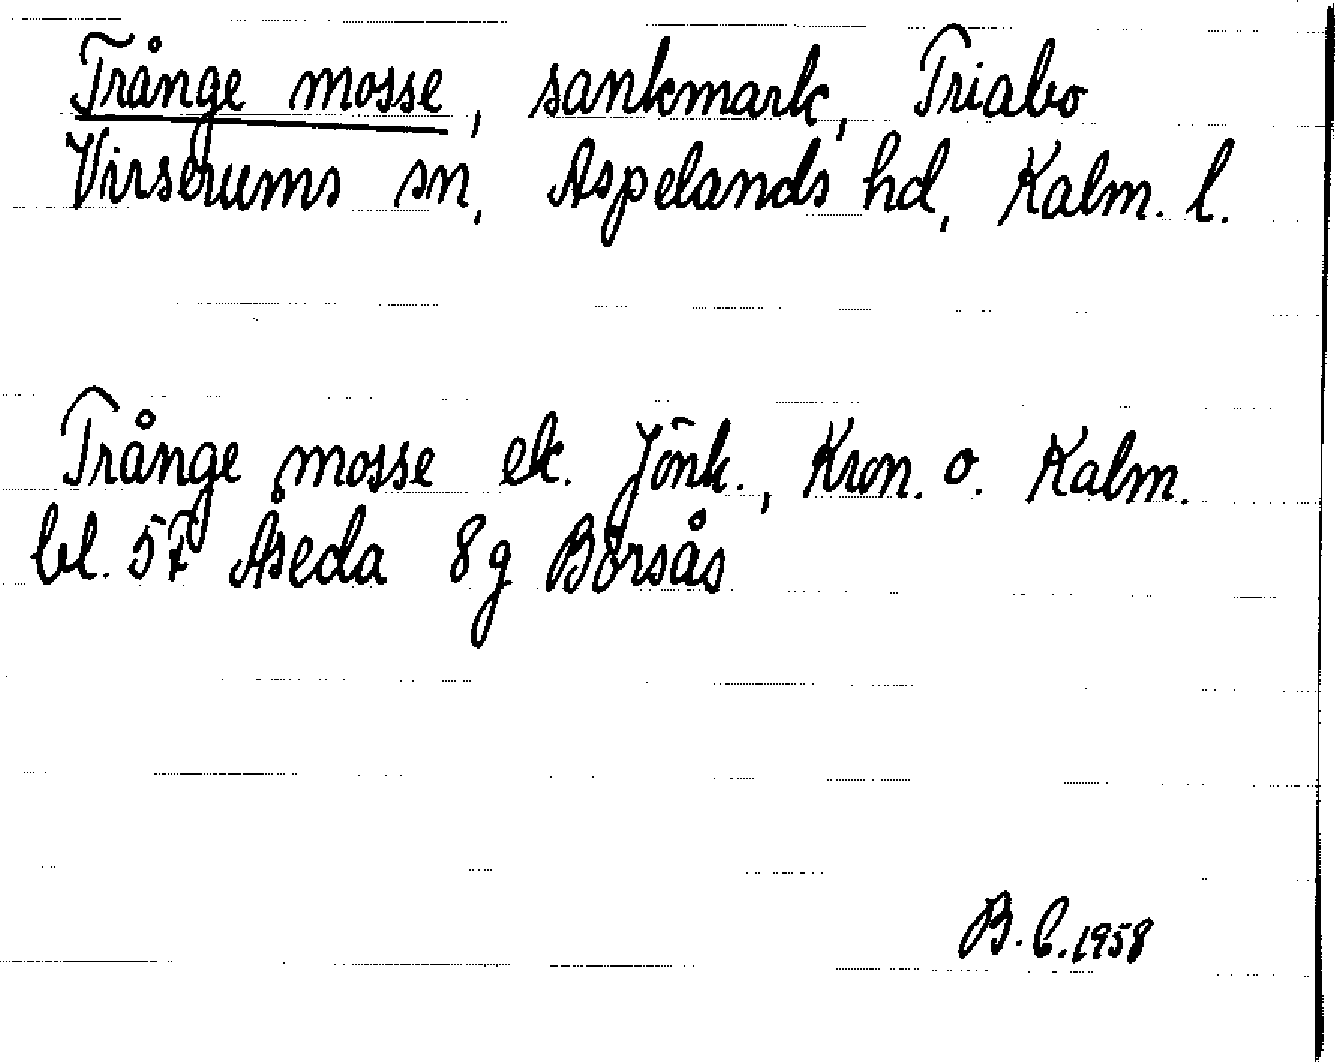 Trånge mosse, sankmark, Triabo
Virserums sn, Aspelands hd, Kalm. l.
Trånge mosse ek. Jönk., Kron. o. Kalm.
bl. 57 Åseda 8g Börsås
B.C. 1958